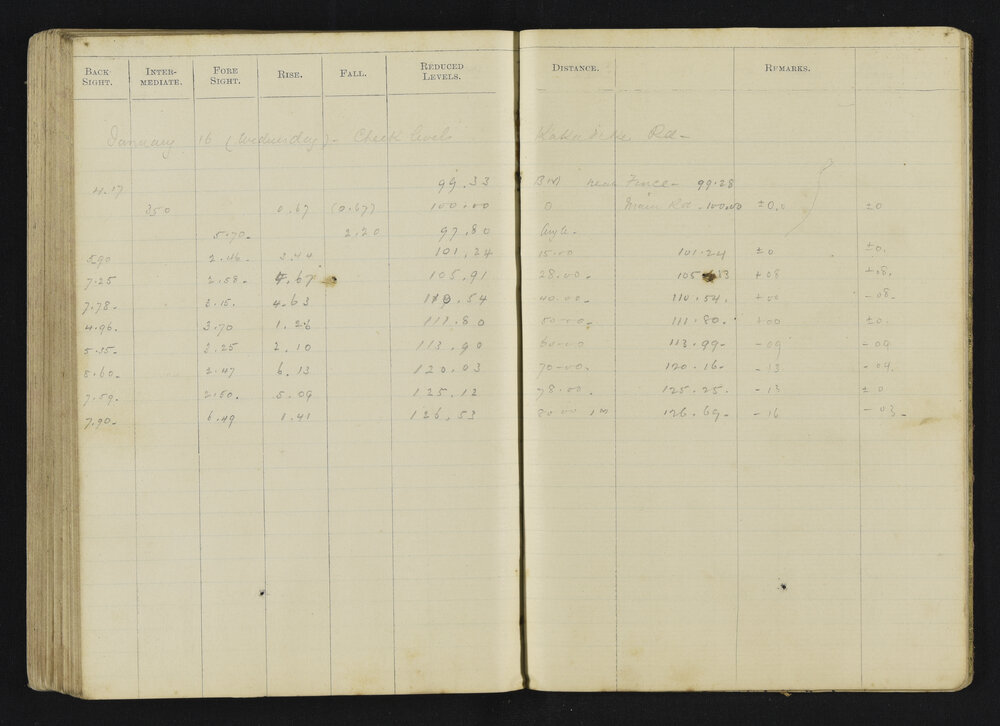 BACK SIGHT. INTER-MEDIATE. FORE SIGHT. RISE. FALL. REDUCED LEVELS. DISTANCE. REMARKS.
January 16 (Wednesday) - Check levels Rd -
4.17 99.33 BM near Fence - 99.28
350 0.67 (0.67) 100.00 0 Main Rd. 100.00 ±0.0 ±0
5.70 - 2.20 97.80
590 2.46 - 3.44 101.24 15.00 101.24 ±0 ±0.
7.25 2.58 - 4.67 - 105.91 28.00 - 105 +08 +.8.
7.78 - 3.15. 4.63 110.54 40.00 - 110.54. ±00 - 08.
4.96. 3.70 1.26 111.80 50.00. 111.80. ±00 ±0.
5.35 - 3.25 2.10 113.90 60.00 113.99 - - 09 - 09
8.60 - 2.47 6.13 120.03 70.00. 120.16 - - 13 - 04.
7.59. 2.50. 5.09 125.12 78.00. 125.25. - 13 ± 0
7.90 - 6.49 1.41 126.53 80.00 126.69 - - 16 - 03 -